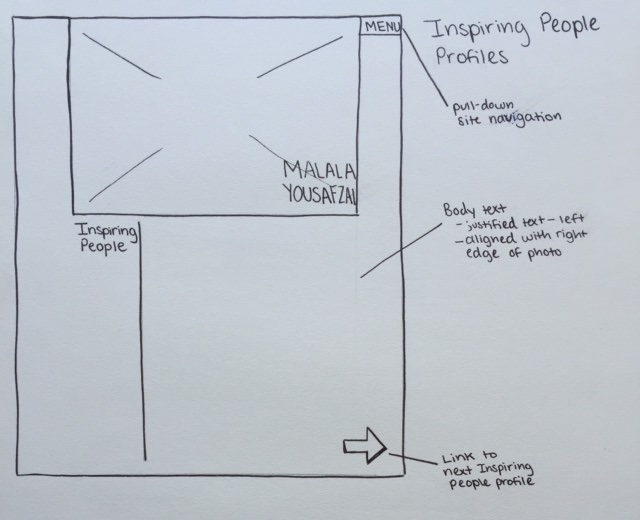 MENU
Inspiring People
Profiles
pull-down
site navigation
MALALA
YOUSAFZAI
Inspiring
People
Body text
- justified text - left
- aligned with right
edge of photo
Link to
next Inspiring
people profile